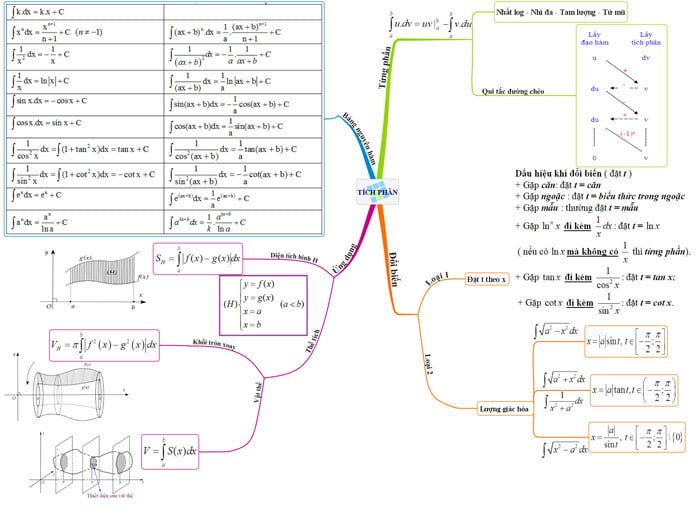 ∫k.dx = k.x + C
∫xⁿdx = xⁿ⁺¹/(n+1) + C (n ≠ −1)
∫(ax + b)ⁿ.dx = 1/a.(ax + b)ⁿ⁺¹/(n+1) + C
∫1/x² dx = −1/x + C
∫1/(ax + b)² dx = −1/a.1/(ax + b) + C
∫1/x dx = ln|x| + C
∫1/(ax + b) dx = 1/a ln|ax + b| + C
∫sin x.dx = −cosx + C
∫sin(ax + b)dx = −1/a cos(ax + b) + C
∫cosx.dx = sin x + C
∫cos(ax + b)dx = 1/a sin(ax + b) + C
∫1/cos²x dx = ∫(1 + tan²x)dx = tan x + C
∫1/cos²(ax + b) dx = 1/a tan(ax + b) + C
∫1/sin²x dx = ∫(1 + cot²x)dx = −cot x + C
∫1/sin²(ax + b) dx = −1/a cot(ax + b) + C
∫eˣdx = eˣ + C
∫e⁽ᵃˣ⁺ᵇ⁾dx = 1/a e⁽ᵃˣ⁺ᵇ⁾ + C
∫aˣdx = aˣ/ln a + C
Bảng nguyên hàm
TÍCH PHÂN
Từng phần
∫ₐᵇ u.dv = uv|ₐᵇ − ∫ₐᵇ v.du
Nhất log - Nhì đa - Tam lượng - Tứ mũ
Qui tắc đường chéo
Lấy đạo hàm
Lấy tích phân
u
dv
+
du
v
-
du
v
(-1)ⁿ
0
v
Đổi biến
Loại 1
Đặt t theo x
Dấu hiệu khi đổi biến ( đặt t )
+ Gặp căn: đặt t = căn
+ Gặp ngoặc : đặt t = biểu thức trong ngoặc
+ Gặp mẫu : thường đặt t = mẫu
+ Gặp lnⁿ x đi kèm 1/x dx : đặt t = ln x
( nếu có ln x mà không có 1/x thì từng phần).
+ Gặp tan x đi kèm 1/cos²x : đặt t = tan x;
+ Gặp cot x đi kèm 1/sin²x : đặt t = cot x.
Loại 2
Lượng giác hóa
∫√(a² − x²)dx
x = |a|sint, t ∈ [−π/2; π/2]
∫√(a² + x²)dx
∫1/(x² + a²) dx
x = |a|tant, t ∈ (−π/2; π/2)
∫√(x² − a²)dx
x = |a|/sint, t ∈ [−π/2; π/2] \ {0}
Ứng dụng
Diện tích hình H
S_H = ∫ₐᵇ|f(x) − g(x)|dx
(H) { y = f(x)
y = g(x)
x = a
x = b
(a < b)
y
g(x)
(H)
f(x)
O
a
b
x
Thể tích
Khối tròn xoay
V_H = π∫ₐᵇ|f²(x) − g²(x)|dx
Vật thể
V = ∫ₐᵇ S(x)dx
Thiết diện của vật thể